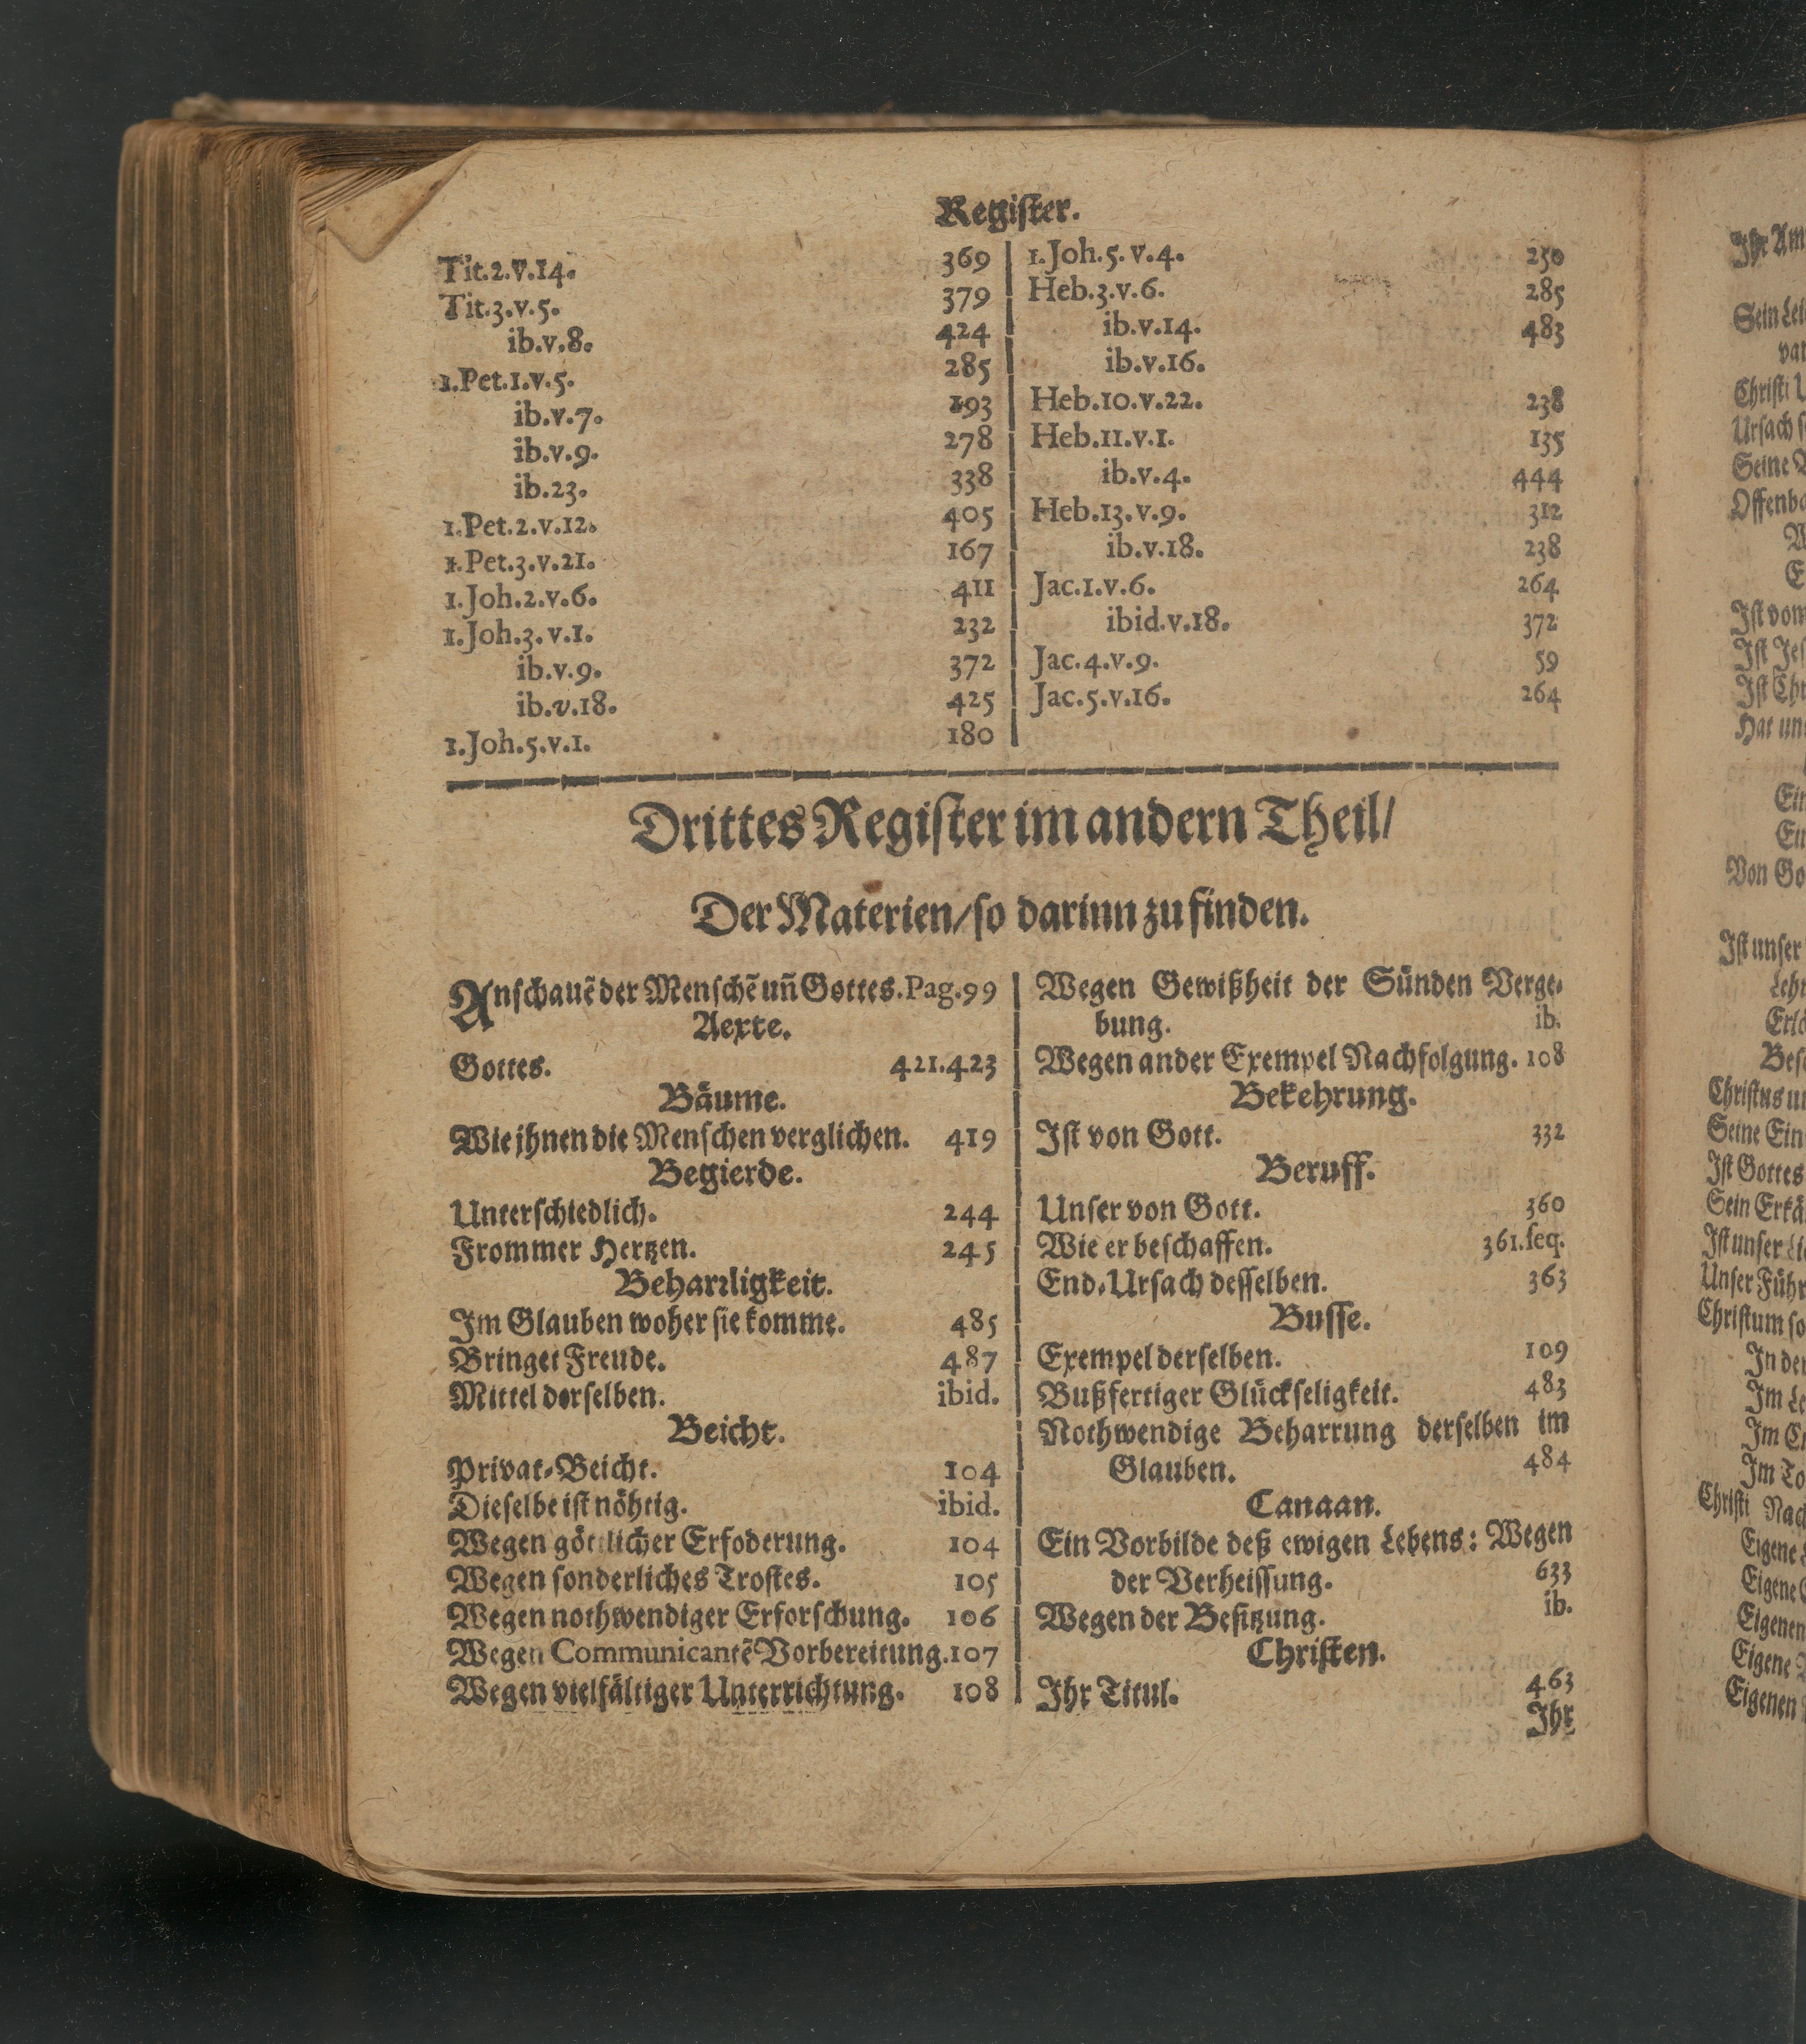 Register.
Tit.2.v.14. 369
Tit.3.v.5. 379
ib.v.8. 424
1.Pet.1.v.5. 285
ib.v.7. 193
ib.v.9. 278
ib.23. 338
1.Pet.2.v.12. 405
1.Pet.3.v.21. 167
1.Joh.2.v.6. 411
1.Joh.3.v.1. 232
ib.v.9. 372
ib.v.18. 425
1.Joh.5.v.1. 180
1.Joh.5.v.4. 250
Heb.3.v.6. 285
ib.v.14. 483
ib.v.16.
Heb.10.v.22. 238
Heb.11.v.1. 135
ib.v.4. 444
Heb.13.v.9. 312
ib.v.18. 238
Jac.1.v.6. 264
ibid.v.18. 372
Jac.4.v.9. 59
Jac.5.v.16. 264
Drittes Regiſter im andern Theil/
Der Materien/ſo darinn zu finden.
Anſchauẽ der Menſchẽ uñ Gottes. Pag.99
Aexte.
Gottes. 421.423
Bäume.
Wie jhnen die Menſchen verglichen. 419
Begierde.
Unterſchiedlich. 244
Frommer Hertzen. 245
Beharꝛligkeit.
Im Glauben woher ſie komme. 485
Bringet Freude. 487
Mittel derſelben. ibid.
Beicht.
Privat-Beicht. 104
Dieſelbe iſt nöhtig. ibid.
Wegen göttlicher Erfoderung. 104
Wegen ſonderliches Troſtes. 105
Wegen nothwendiger Erforſchung. 106
Wegen Communicantẽ Vorbereitung. 107
Wegen vielfältiger Unterrichtung. 108
Wegen Gewißheit der Sünden Verge-
bung. ib.
Wegen ander Exempel Nachfolgung. 108
Bekehrung.
Iſt von Gott. 332
Beruff.
Unſer von Gott. 360
Wie er beſchaffen. 361.ſeq.
End-Urſach deſſelben. 363
Buſſe.
Exempel derſelben. 109
Bußfertiger Glückſeligkeit. 483
Nothwendige Beharrung derſelben im
Glauben. 484
Canaan.
Ein Vorbilde deß ewigen Lebens: Wegen
der Verheiſſung. 633
Wegen der Beſitzung. ib.
Chriſten.
Ihr Titul. 463
Ihr
Ihr Am
Sein Lei
Chriſti
Urſach
Seine
Iſt vom
Iſt
Iſt
Hat
Von Go
Iſt unſer
Chriſtus
Seine Ein
Iſt Gottes
Iſt unſer
Unſer Führ
Chriſtum ſo
In der
Im
Im
Im To
Chriſti
Eigene
Eigene
Eigenen
Eigene
Eigenen